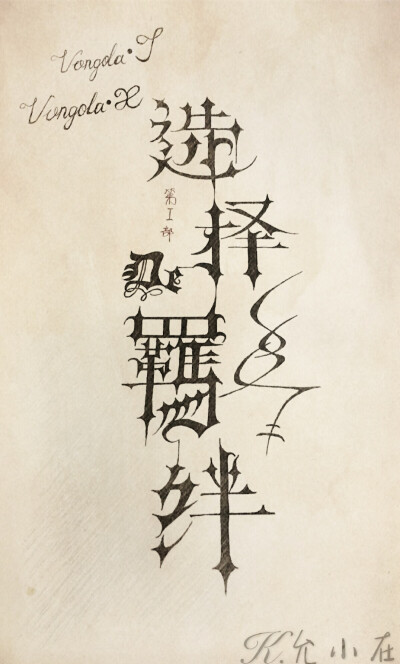 Vongola·I
Vongola·X
选择
第I部
De
羁绊
K.允小在